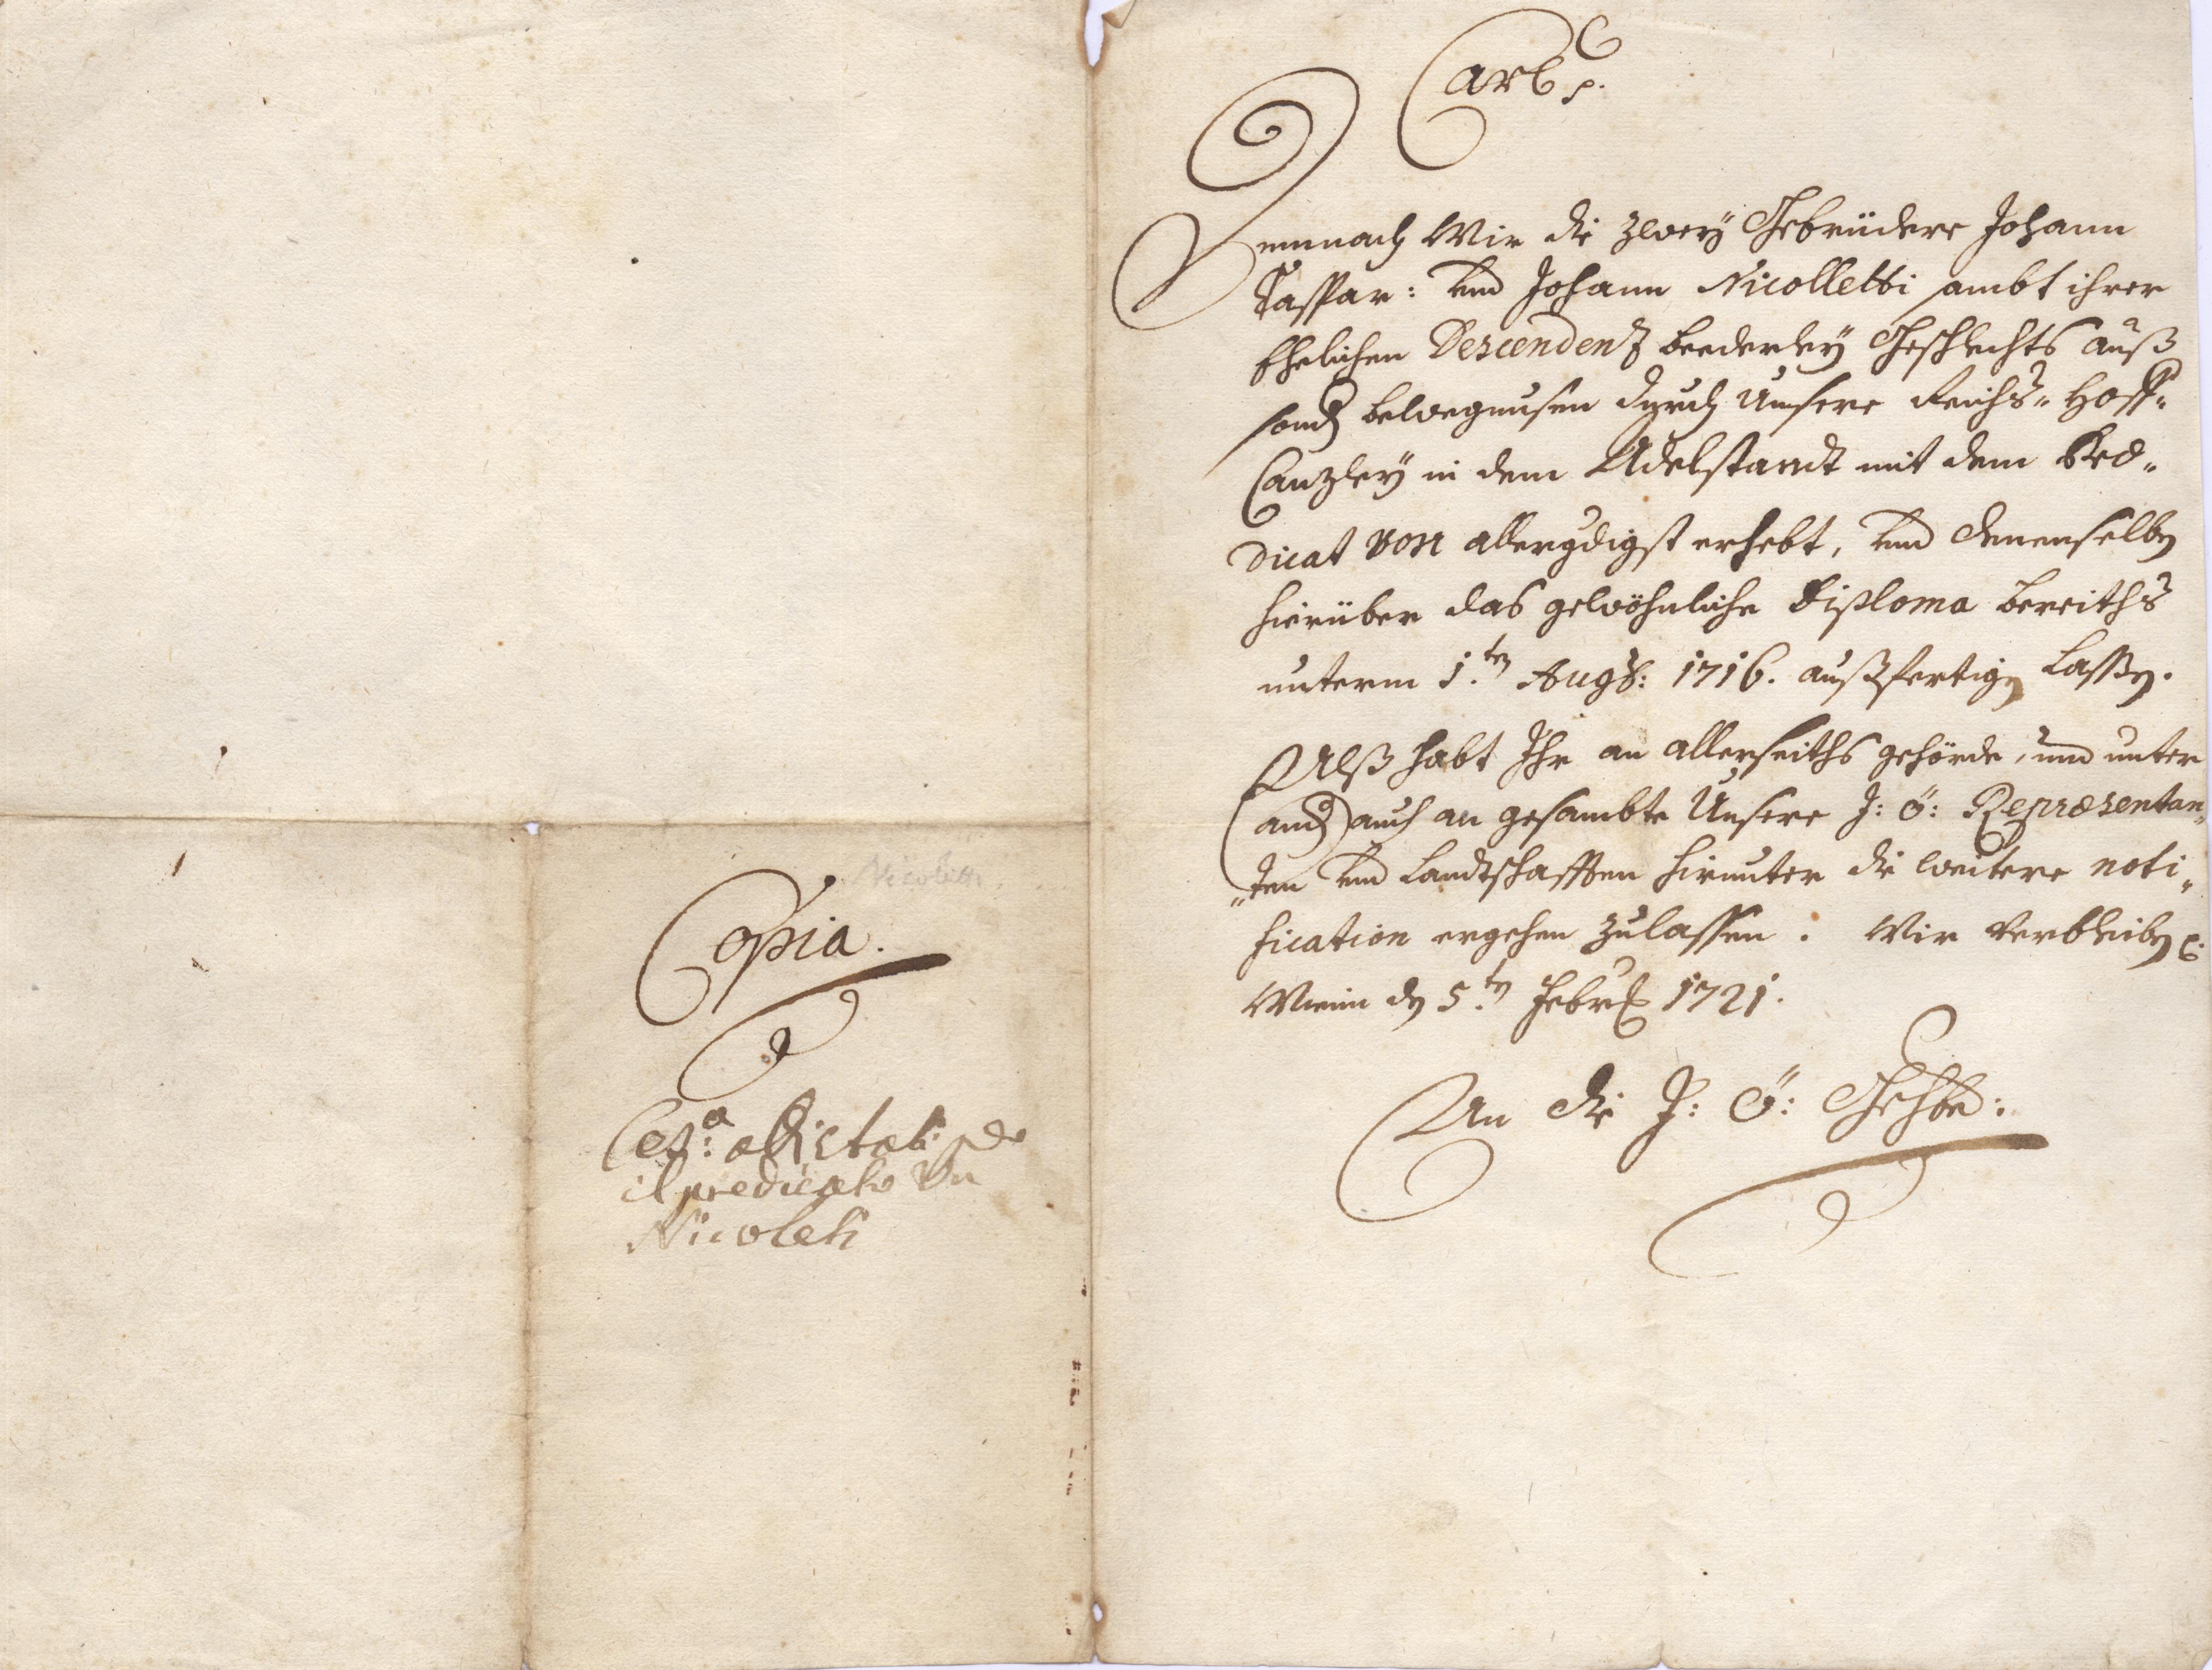 Nicoletti
Copia.
Ces:a
il predicato Von
Nicoleti
Carl p.
Demnach Wir die zweÿ Gebrüdere Johann
Caspar: und Johann Nicolletti sambt ihrer
Ehelichen Descendenz beederleÿ Geschlechts auß
sond bewegnusen durch Unsere Reichs- Hoff-
Canzleÿ in dem Adelstandt mit dem Præ-
dicat von allergdigst erhebt, und denenselben
hierüber das gewöhnliche Diploma bereiths
unterm 1.ten Augs: 1716. außfertigen lassen.
Alß habt Ihr an allerseiths gehörde, und unter
and auch an gesambte Unsere J: Ö: Repræsentan-
„ten und Landtschafften hirunter die weitere noti-
fication ergehen zulassen. Wir verbleiben p.
Wienn den 5.ten Febr 1721.
An die J: Ö: